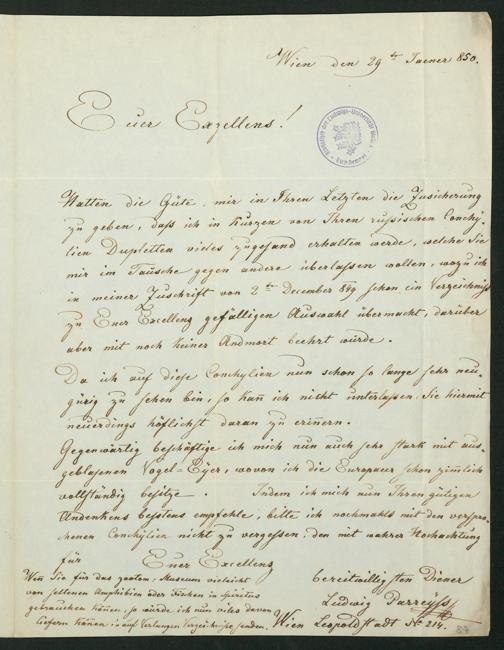 Wien den 29te Jaener 850.
Euer Exzellens!
Hatten die Güte, mir in Ihren Letzten die Zusicherung
zu geben, daß ich in Kurzen von Ihren rußischen Conchy-
lien Dupletten vieles zugesand erhalten werde, welche Sie
mir im Tausche gegen andere überlassen wolten, wozu ich
in meiner Zuschrift von 2te December 849 schon ein Verzeichniß
zu Euer Excellenz gefälligen Auswahl übermacht, darüber
aber mit noch keiner Andwort beehrt würde.
Da ich auf diese Conchylien nun schon so lange sehr neu-
gürig zu sehen bin, so kan ich nicht unterlassen, Sie hiermit
neuerdings höflichst daran zu erinern.
Gegenwärtig beschäftige ich mich nun auch sehr stark mit aus-
geblasenen Vogel-Eyer, wovon ich die Europaer schon zimlich
vollständig besitze. Indem ich mich nun Ihren gütigen
Andenkens bestens empfehle, bitte ich nochmahls mit den verspro-
chenen Conchylien nicht zu vergessen, den mit wahrer Hochachtung
für Euer Excellenz
bereitwilligsten Diener
Ludwig Parreyss
Wien Leopoldstadt No 214.
Wen Sie für das zootom: Museum vieleicht
von seltenen Amphibien oder Fischen in Spiritus
gebrauchen könen, so würde ich nun viles davon
liefern könen u auf Verlangen Verzeichnisse senden.